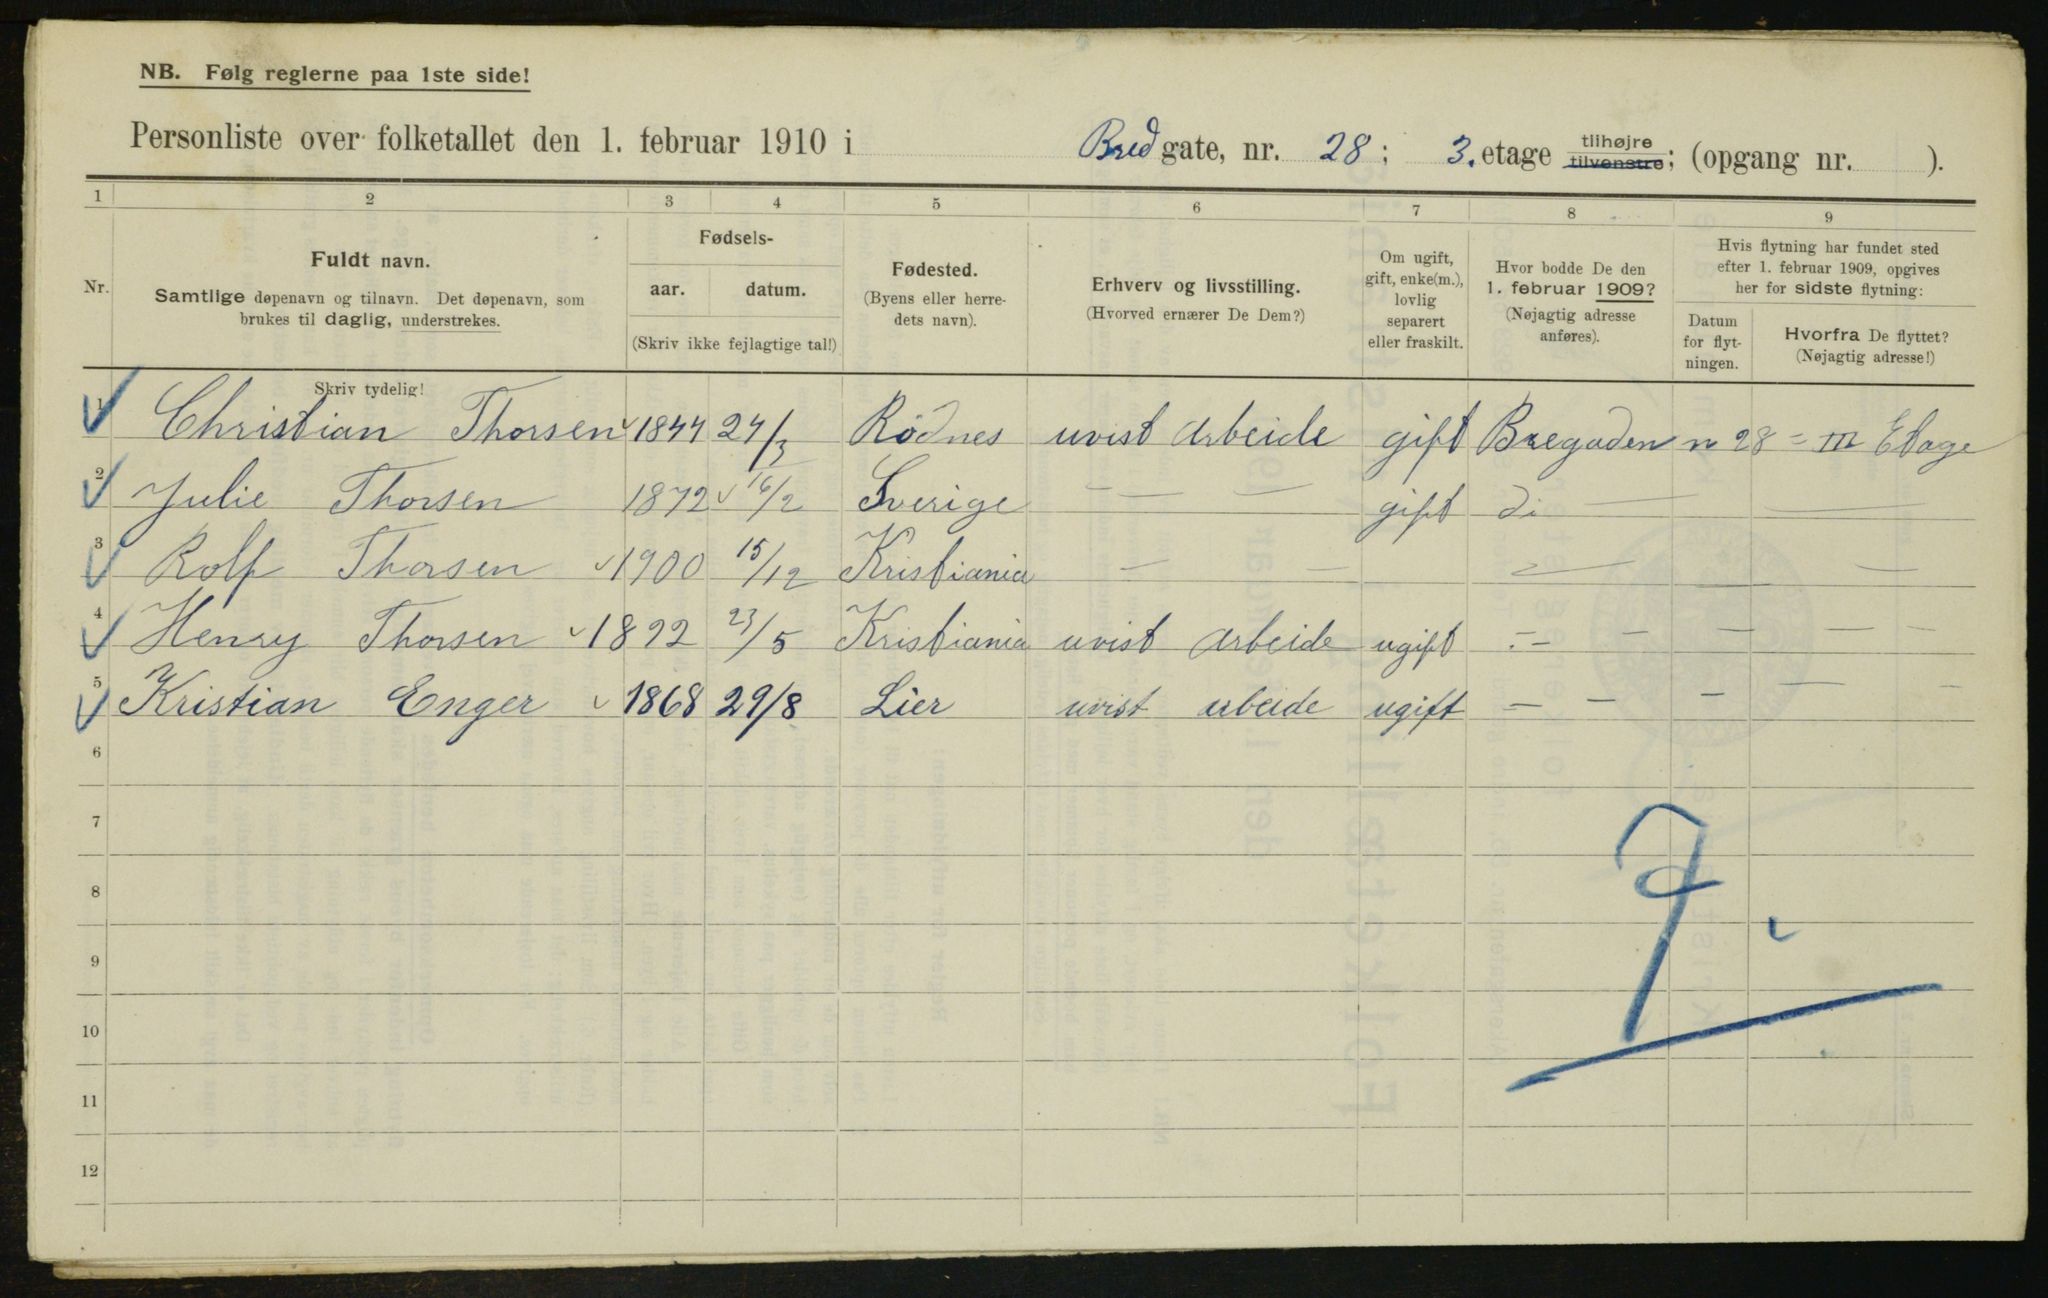 NB. Følg reglerne paa 1ste side!
Personliste over folketallet den 1. februar 1910 i Bred gate, nr. 28; 3. etage tilhøjre tilvenstre; (opgang nr. ).
1 2 3 4 5 6 7 8 9
Nr.
Fuldt navn.
Samtlige døpenavn og tilnavn. Det døpenavn, som
brukes til daglig, understrekes.
Skriv tydelig!
Fødsels-
aar. datum.
(Skriv ikke fejlagtige tal!)
Fødested.
(Byens eller herre-
dets navn).
Erhverv og livsstilling.
(Hvorved ernærer De Dem?)
Om ugift,
gift, enke(m.),
lovlig
separert
eller fraskilt.
Hvor bodde De den
1. februar 1909?
(Nøjagtig adresse
anføres).
Hvis flytning har fundet sted
efter 1. februar 1909, opgives
her for sidste flytning:
Datum
for flyt-
ningen.
Hvorfra De flyttet?
(Nøjagtig adresse!)
1 Christian Thorsen 1844 24/3 Rødnes uvist arbeide gift Bregaden n 28 = III Etage
2 Julie Thorsen 1872 16/2 Sverige — — — gift di —
3 Rolf Thorsen 1900 15/12 Kristiania — —
4 Henry Thorsen 1892 23/5 Kristiania uvist arbeide ugift — — — — —
5 Kristian Enger 1868 29/8 Lier uvist arbeide ugift — — — — —
6
7
8
9
10
11
12